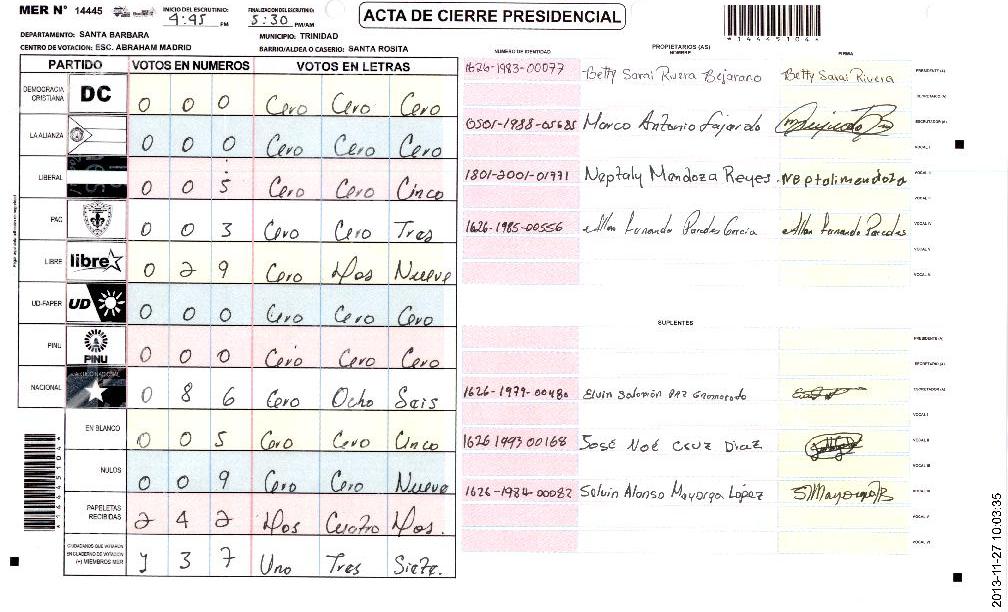 MER N° 14445
INICIO DEL ESCRUTINIO: 4:45 PM
FINALIZACION DEL ESCRUTINIO: 5:30 PM/AM
ACTA DE CIERRE PRESIDENCIAL
*14445104*
DEPARTAMENTO: SANTA BARBARA
MUNICIPIO: TRINIDAD
CENTRO DE VOTACION: ESC. ABRAHAM MADRID
BARRIO/ALDEA O CASERIO: SANTA ROSITA
PARTIDO VOTOS EN NUMEROS VOTOS EN LETRAS
DEMOCRACIA CRISTIANA DC 0 0 0 Cero Cero Cero
LA ALIANZA 0 0 0 Cero Cero Cero
LIBERAL 0 0 5 Cero Cero Cinco
PAC 0 0 3 Cero Cero Tres
LIBRE libre 0 2 9 Cero Dos Nueve
UD-FAPER UD 0 0 0 Cero Cero Cero
PINU PINU 0 0 0 Cero Cero Cero
NACIONAL 0 8 6 Cero Ocho Seis
EN BLANCO 0 0 5 Cero Cero Cinco
NULOS 0 0 9 Cero Cero Nueve
PAPELETAS RECIBIDAS 2 4 2 Dos Cuatro Dos.
CIUDADANOS QUE VOTARON EN CUADERNO DE VOTACION (+) MIEMBROS MER 1 3 7 Uno Tres Siete.
*14445104*
NUMERO DE IDENTIDAD
PROPIETARIOS (AS)
NOMBRE
FIRMA
1626-1983-00077 Betty Sarai Rivera Bejarano Betty Sarai Rivera PRESIDENTE (A)
SECRETARIO (A)
0501-1988-05685 Marco Antonio Fajardo ESCRUTADOR (A)
VOCAL I
1801-2001-01771 Neptaly Mendoza Reyes. Neptalimendoza VOCAL II
VOCAL III
1626-1985-00556 Allan Fernando Paredes Garcia Allan Fernando Paredes VOCAL IV
VOCAL V
SUPLENTES
PRESIDENTE (A)
SECRETARIO (A)
1626-1979-00480 Elvin Salomón Paz ESCRUTADOR (A)
VOCAL I
1626 1993 00168 José Noé Cruz Diaz VOCAL II
VOCAL III
1626-1984-00082 Selvin Alonso Mayorga López SMayorga
VOCAL V
VOCAL VI
2013-11-27 10:03:35